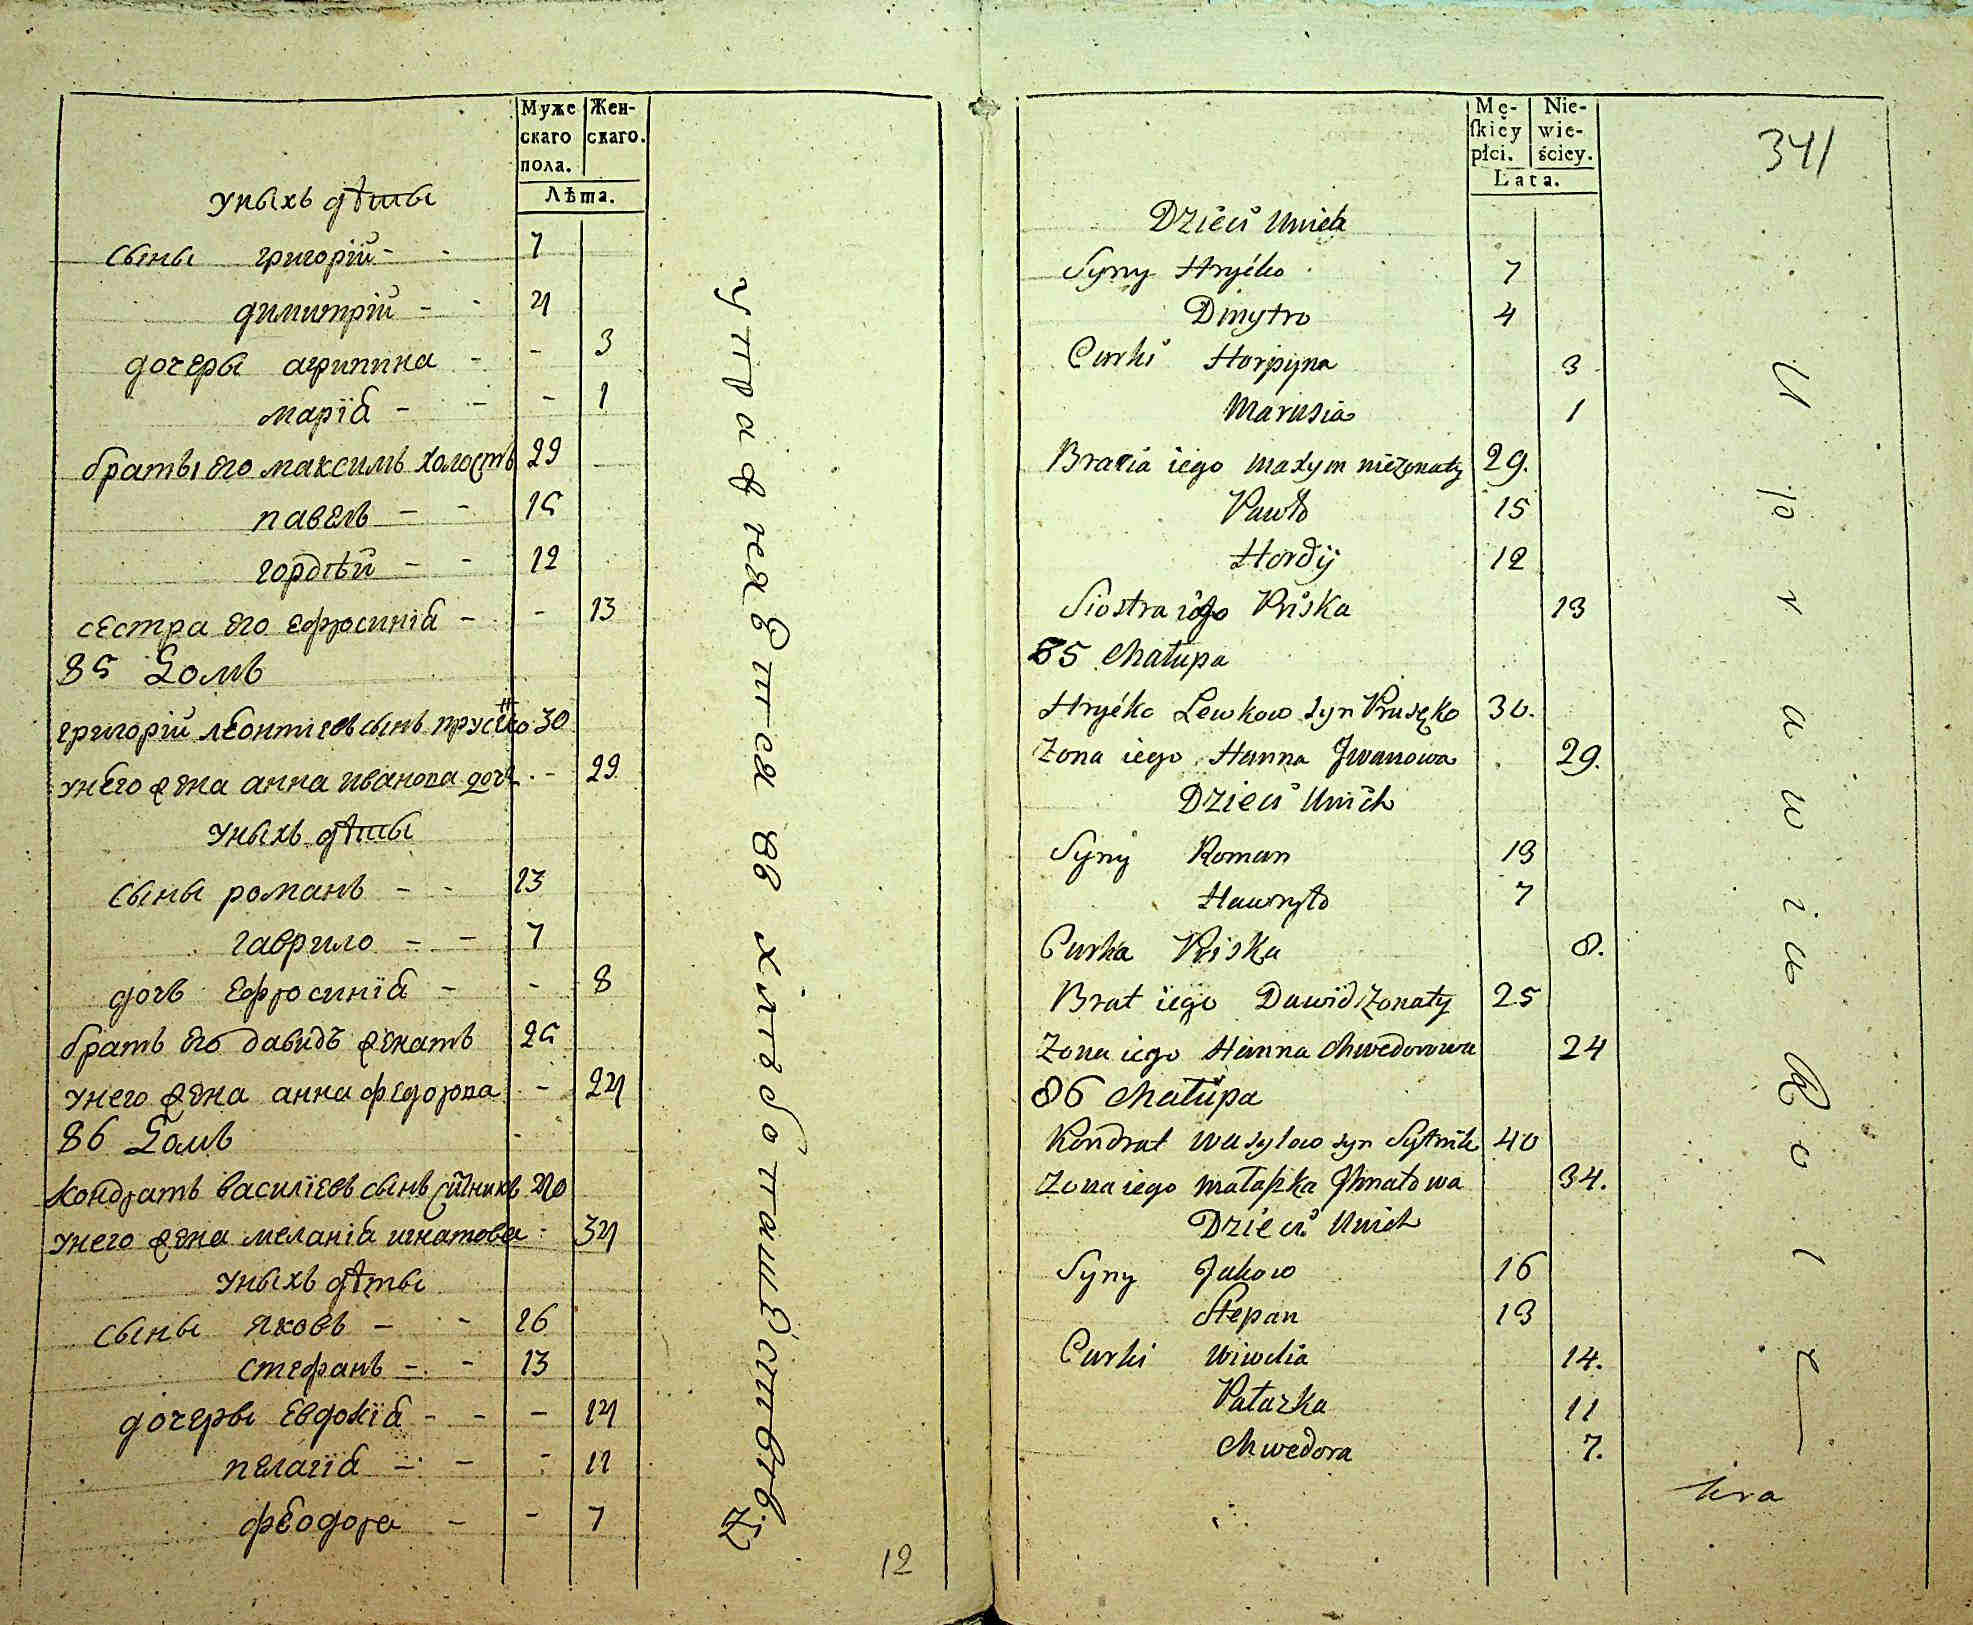 Муже
скаго
пола.
Жен-
скаго.
Лѣта.
уныхъ дѣты
сыны григорій - - 7
димитрій - - 4
дочеры агрипина - - 3
марія - - - 1
братьı его максимъ холостъ 29
павелъ - - 15
гордѣй - - 12
сестра его ефросинія - - 13
85 Домъ
григорій леонтіевъ сынъ 30
унего жена анна иванова дочь - 29
уныхъ дѣты
сыны романъ - - 13
гаврило - - 7
дочь ефросинія - - 8
братъ его давидъ женатъ 25
унего жена анна федорова - 24
86 Домъ
кондратъ василіевъ сынъ ситникъ 40
унего жена меланія игнатова - 34
уныхъ дѣты
сыны яковъ - - 16
стефанъ - - 13
дочеры евдокія - - - 14
пелагія - - - 11
феодора - - 7
упражняется въ хлѣбопашествѣ
12
Mę-
skiey
płci.
Nie-
wie-
ściey.
Lata.
341
Dzieci Unich
Syny Hryćko 7
Dmytro 4
Curki Horpyna 3
Marusia 1
Bracia iego maxym nieżonaty 29.
Pawło 15
Hordij 12
Siostra iego Priska 13
85 Chałupa
Hryćko Lewkow syn Prusęko 30.
Żona iego Hanna Jwanowa 29.
Dzieci Unich
Syny Roman 13
Hawryło 7
Curka Priska 8.
Brat iego Dawid żonaty 25
Żona iego Hanna Chwedorowa 24
86 Chałupa
Kondrat wasylow syn Sytnik 40
Żona iego małaszka Jhnatowa 34.
Dzieci Unich
Syny Jakow 16
Stepan 13
Curki wiwdia 14.
Pałazka 11
Chwedora 7.
Uprawia Rolę